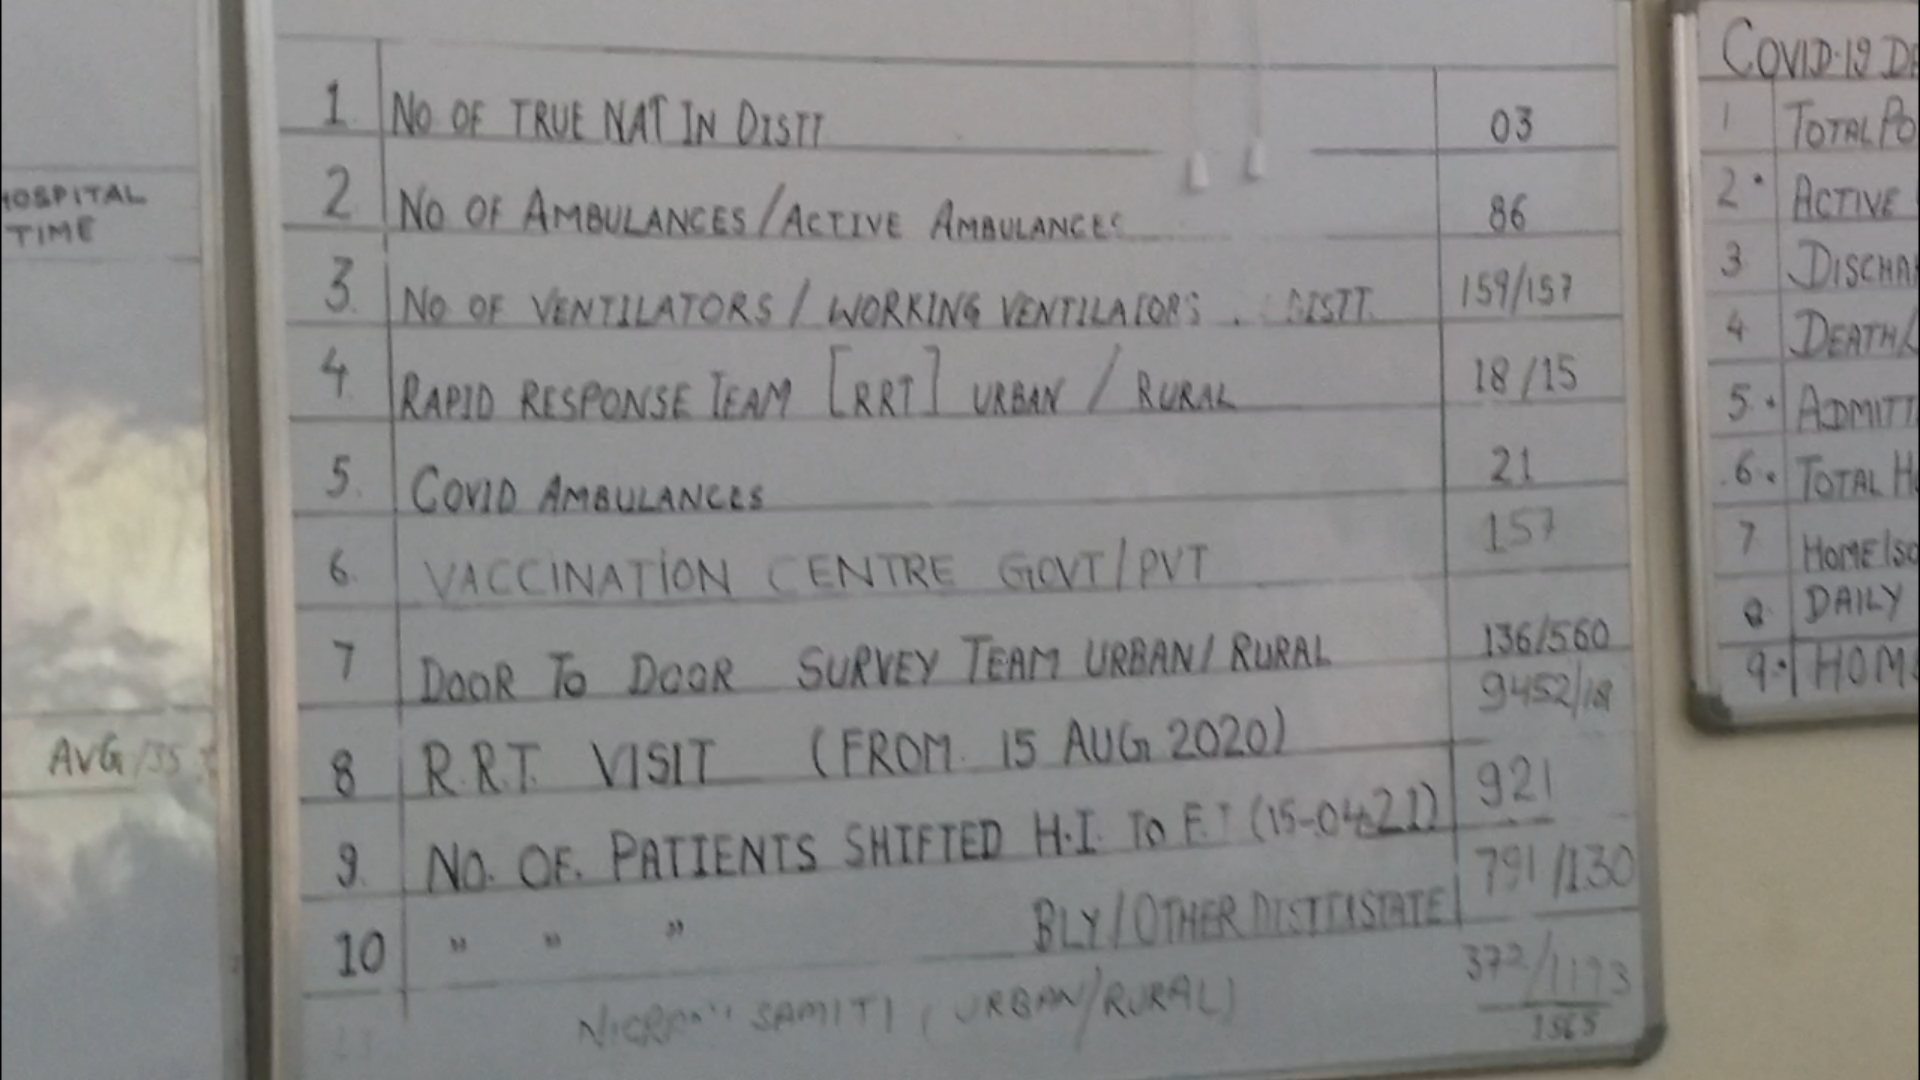 HOSPITAL
TIME
AVG
1. NO OF TRUE NAT IN DISTT 03
2 NO OF AMBULANCES/ACTIVE AMBULANCES 86
3. NO OF VENTILATORS / WORKING VENTILATORS DISTT. 159/157
4. RAPID RESPONSE TEAM [RRT] URBAN / RURAL 18/15
5. COVID AMBULANCES 21
6. VACCINATION CENTRE GOVT/PVT 157
7 DOOR TO DOOR SURVEY TEAM URBAN/RURAL 136/560
8 R.R.T. VISIT (FROM 15 AUG 2020) 9452/18
9. NO. OF. PATIENTS SHIFTED H.I. TO F.T (15-04-21) 921
10 " " " BLY/OTHER DISTT/STATE 791/130
SAMITI (URBAN/RURAL) 372/1193
1565
COVID-19
1 TOTAL
2. ACTIVE
3
4 DEATH/
5.
6. TOTAL
7 HOME
8. DAILY
9.